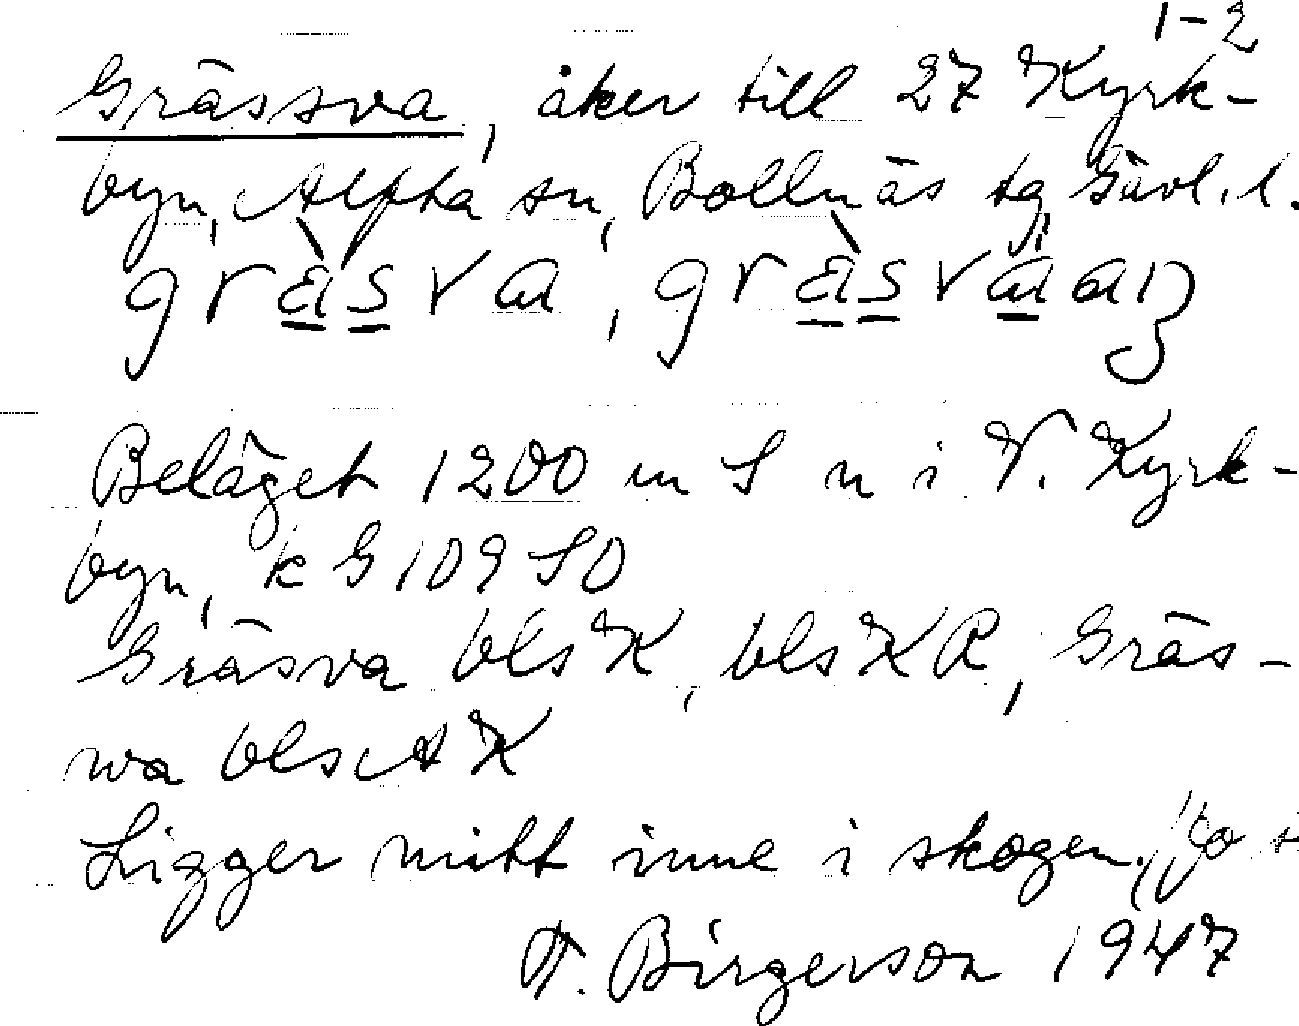 1-2
Grässva, åker till 27 Kyrk-
byn, Alfta sn, Bollnäs tg, Gävl. l.
gràsva, gràsvaaŋ
Beläget 1200 m S n i V. Kyrk-
byn, k G 109 SO
Gräsva bls K, bls K R, Gräs-
wa bls A K
Ligger mitt inne i skogen,
T. Birgerson 1947